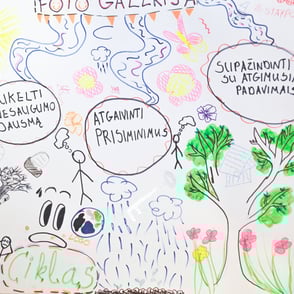 FOTO GALERIJA
SUKELTI
NESAUGUMO
JAUSMĄ
ATGAIVINTI
PRISIMINIMUS
SUPAŽINDINTI
SU
PADAVIMAIS
Ciklas